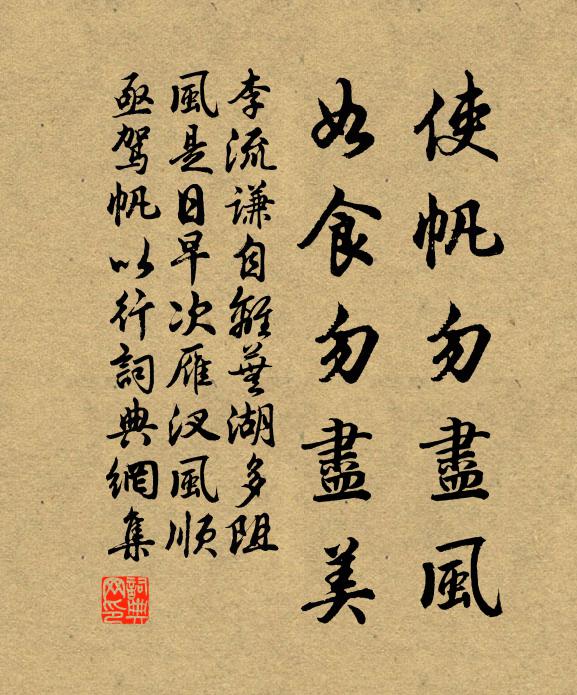 使帆勿盡風
如食勿盡美
李流謙自離蕪湖多阻
風是日早次雁汊風順
亟駕帆以行詞典網集
詞典网印